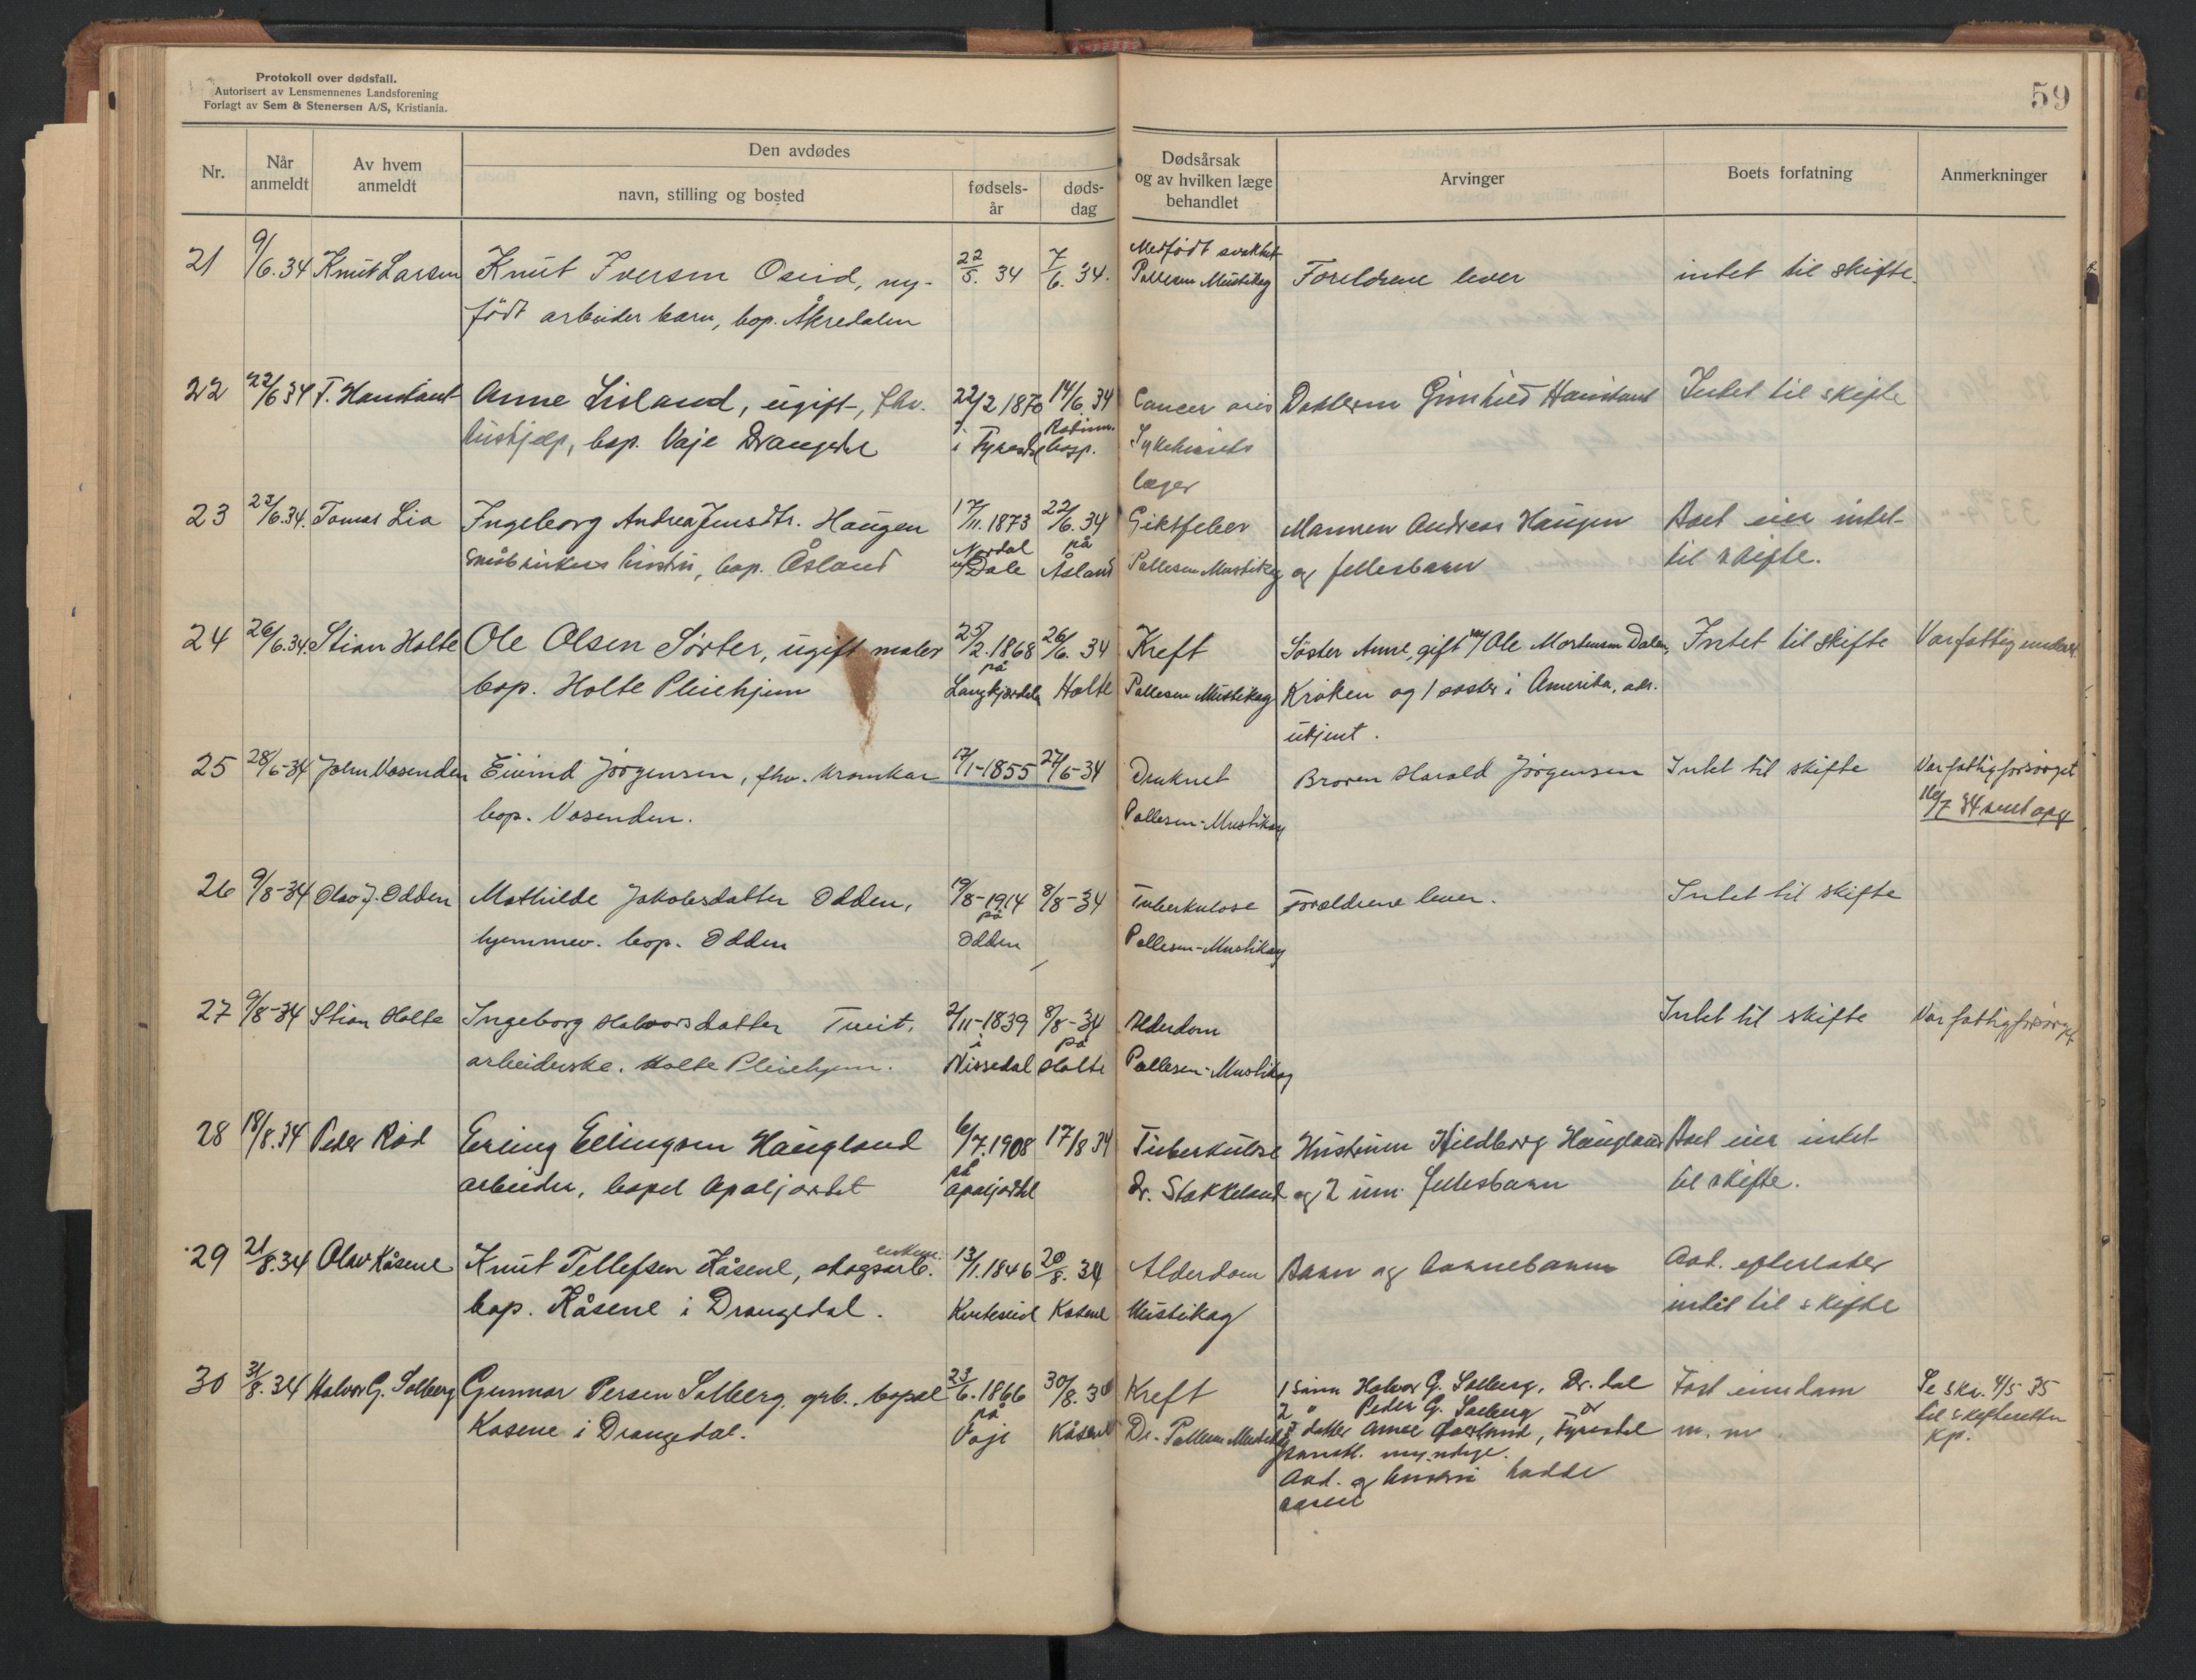 Protokoll over dødsfall.
Autorisert av Lensmennenes Landsforening
Forlagt av Sem & Stenersen A/S, Kristiania.
59
Nr.
Når anmeldt
Av hvem anmeldt
Den avdødes
navn, stilling og bosted
fødsels-år
døds-dag
Dødsårsak og av hvilken læge behandlet
Arvinger
Boets forfatning
Anmerkninger
21 9/6.34 Knut Larsen Knut Iversen Oseid, ny- 22/5. 34 7/6. 34. Medfødt svakhet Foreldrene lever intet til skifte.
født arbeider barn, bop. Åkredalen Pallesen Mustikag
22 22/6 34 T. Anne Lisland, ugift, fhv. 22/2 1870 14/6. 34 Cancer Datteren Intet til skifte
hushjelp, bop. Vaje Drangedal i Tyresdal hosp. Sykehusets
læger
23 23/6.34. Tomas Lia Ingeborg Andrea Jensdtr. Haugen 17/11.1873 22/6.34 Giktfeber Mannen Andreas Haugen Boet eier intet
småbrukers hustru, bop. Åsland Dale på Åsland Pallesen Mustikag og fellesbarn til skifte.
24 26/6.34. Stian Holte Ole Olsen Sørter, ugift maler 25/2.1868 26/6. 34 Kreft Søster Anne, gift m/ Ole Mortensen Dalen, Intet til skifte Var fattigunderst.
bop. Holte Pleiehjem på Holte Pallesen Mustikag Kroken og 1 søster i Amerika, adr.
ukjent.
25 28/6-34 John Vasenden Eivind Jørgensen, fhv. kramkar 17/1-1855 27/6-34 Druknet Broren Harald Jørgensen Intet til skifte Var fattigforsørget
bop. Vasenden. Pallesen-Mustikag 16/7 34 sendt opg
26 9/8-34 Olav J. Odden Mathilde Jakobsdatter Odden, 19/8-1914 8/8-34 Tuberkulose Foreldrene lever. Intet til skifte
hjemmev. bop. Odden på Odden Pallesen-Mustikag
27 9/8-34 Stian Holte Ingeborg Halvorsdatter Tveit. 2/11-1839 8/8-34 Alderdom Intet til skifte Var fattigforsørget
arbeiderske. Holte Pleiehjem. i Nissedal på Holte Pallesen-Mustikag
28 18/8.34 Peder Rød Erling Ellingsen Haugland 6/7.1908 17/8 34 Tuberkulose Hustruen Hildborg Haugland Boet eier intet
arbeider, bopel Apaljordet på Apaljordet Dr. Stakkeland og 2 um. fellesbarn til skifte.
29 21/8.34 Olav Kåsene Knut Tellefsen Kåsene, skogsarb. enkem. 13/1.1846 20/8. 34 Alderdom Barn og barnebarn Avd. efterlater
bop. Kåsene i Drangedal. Kviteseid Kåsene Mustikag intet til skifte
30 31/8. 34 Halvor G. Solberg Gunnar Persen Solberg grb., bopel 23/6. 1866 30/8. 34 Kreft 1 sønn Halvor G. Solberg, Dr.dal Fast eiendom Se skr. 4/5 35
Kåsene i Drangedal. på Vaje Kåsene Dr. Pallesen Mustikag 2 " Peder G. Solberg m. m. til skifteretten
3 datter Anne Øverland, Fyresdal Kp.
samtl. myndige.
Avd. og hustru hadde